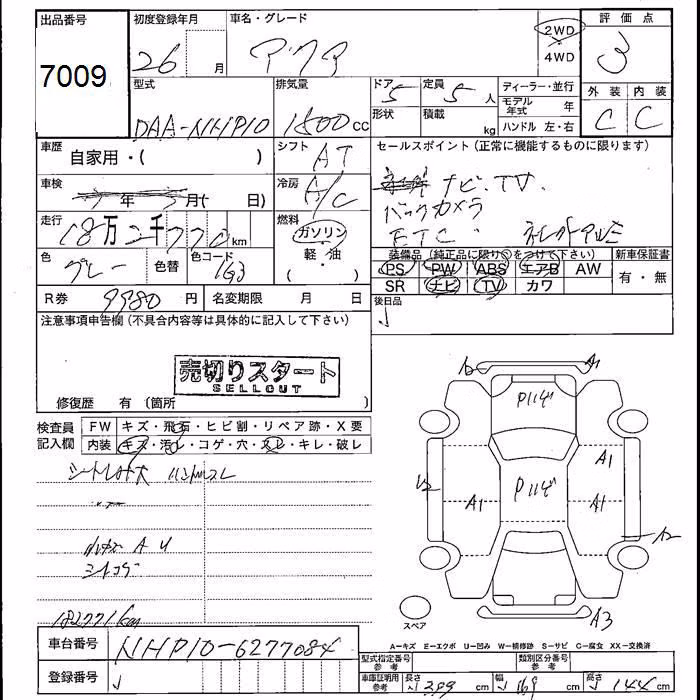 出品番号 初度登録年月 車名・グレード 評価点
7009 26 月 アクア 2WD 4WD 3
型式 排気量 ドア 5 定員 5 人 ディーラー・並行 外装 内装
DAA-NHP10 1500 cc 形状 積載 kg モデル年式 年 C C
ハンドル 左・右
車歴 自家用・( ) シフト AT セールスポイント(正常に機能するものに限ります)
車検 年 月( 日) 冷房 A/C ナビ.TV.
バックカメラ
走行 18万2千770km 燃料 ガソリン・軽・油( ) ETC
色 グレー 色替 色コード 1G3 装備品(純正品に限り○をつけて下さい) 新車保証書
PS PW ABS エアB AW 有・無
SR ナビ TV カワ
R券 9980円 名変期限 月 日 後日品
注意事項申告欄(不具合内容等は具体的に記入して下さい)
売切りスタート
SELLOUT
修復歴 有(箇所 )
検査員記入欄 FW キズ・飛石・ヒビ割・リペア跡・X要
内装 キズ・汚レ・コゲ・穴・スレ・キレ・破レ
ハンドルスレ
A U
182771km
A1
P
A1
P
A1
A1
A2
A3
スペア
A-キズ E-エクボ U-凹み W-補修跡 S-サビ C-腐食 XX-交換済
車台番号 NHP10-6277084 型式指定番号 参考 類別区分番号 参考
登録番号 車庫証明用 参考 長さ 399 cm 幅 169 cm 高さ 144 cm